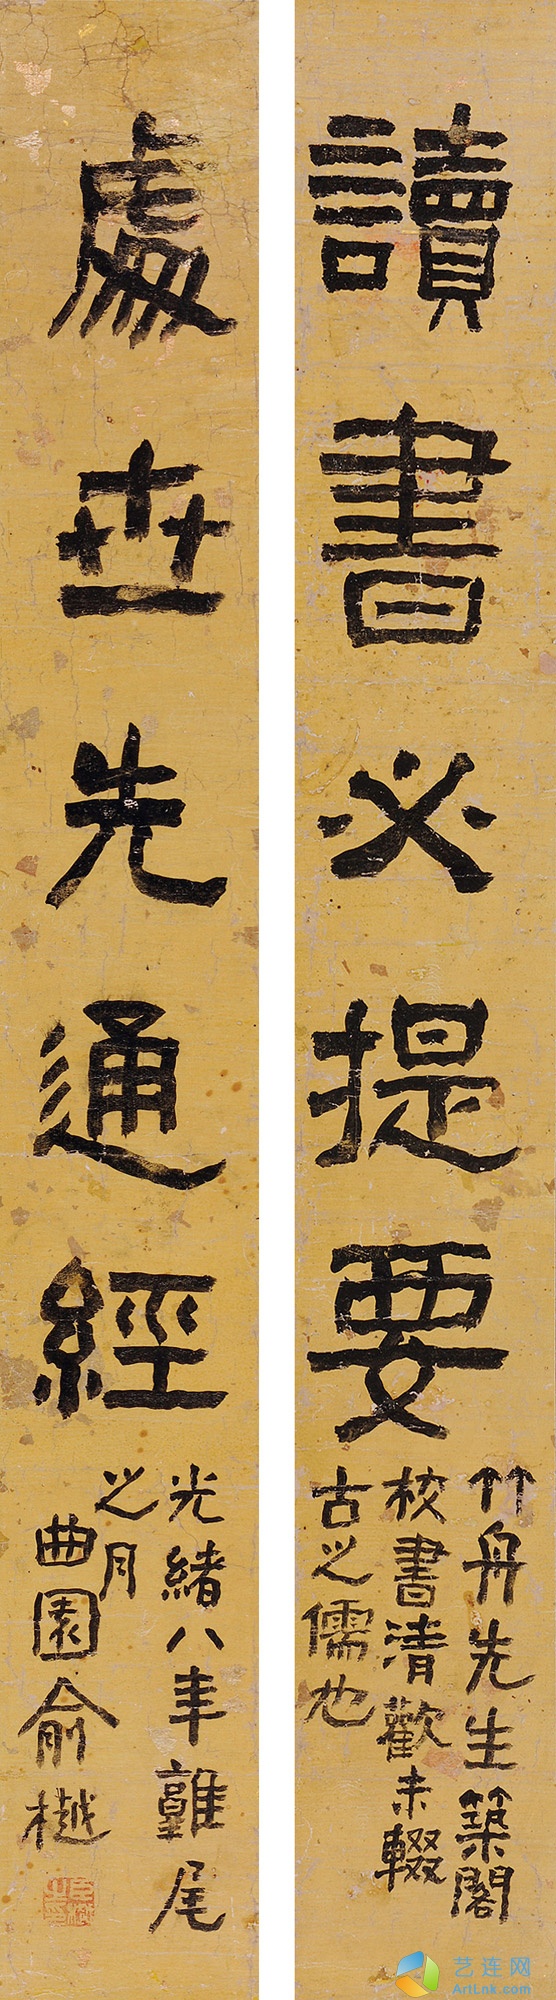 讀書必提要
竹舟先生築閣
校書清歡未輟
古之儒也
處世先通經
光緒八年雞尾
之月
曲園俞樾
艺连网
ArtLnk.com